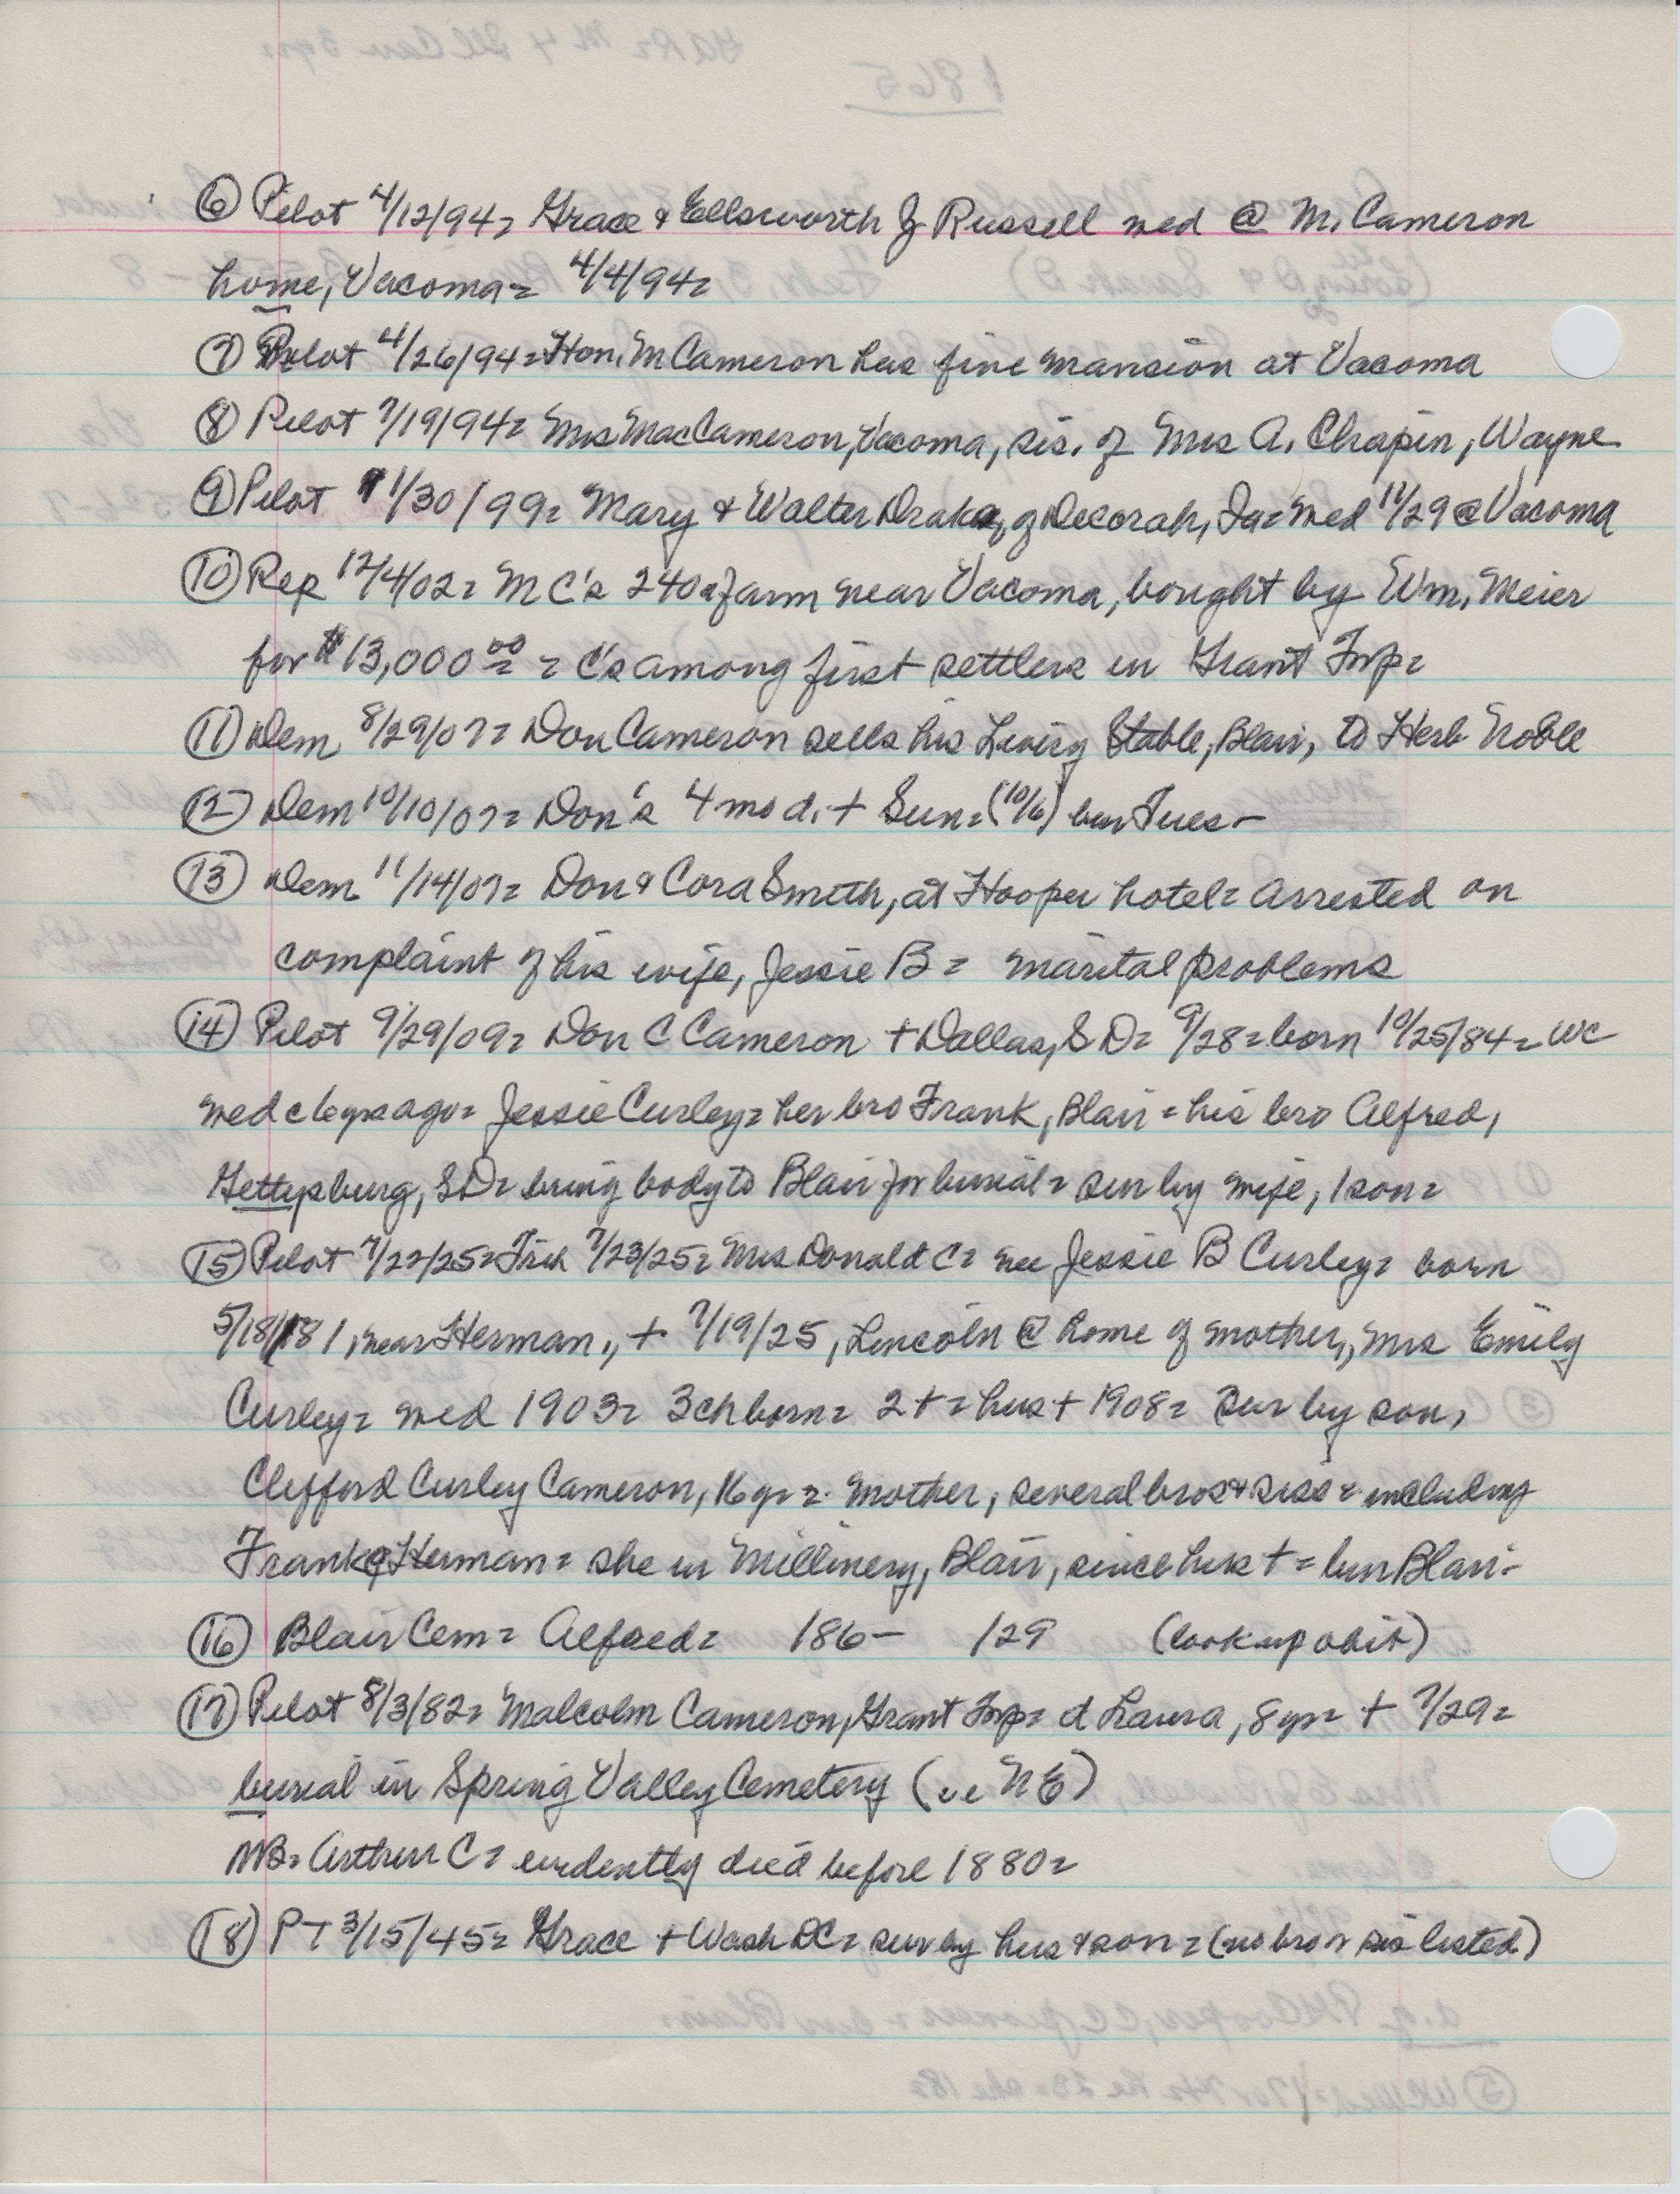 ⑥ Pilot 4/12/94= Grace & Ellsworth J Russell wed @ M. Cameron
home, Vacoma= 4/4/94=
⑦ Pilot 4/26/94= Hon. M Cameron has fine mansion at Vacoma
⑧ Pilot 7/19/94= Mrs Mac Cameron, Vacoma, sis. of Mrs A. Chapin, Wayne
⑨ Pilot 11/30/99= Mary & Walter Drake, of Decorah, Ia= wed 11/29 @ Vacoma
⑩ Rep 12/4/02= M C's 240a farm near Vacoma, bought by Wm. Meier
for $13,000 00 = C's among first settlers in Grant Twp=
⑪ Dem 8/29/07= Don Cameron sells his Livery Stable, Blair, to Herb Noble
⑫ Dem 10/10/07= Don's 4 mo d. + Sun= (10/6) bur Tues-
⑬ Dem 11/14/07= Don & Cora Smith, at Hooper hotel= arrested on
complaint of his wife, Jessie B= marital problems
⑭ Pilot 9/29/09= Don C Cameron + Dallas, SD= 9/28= born 10/25/84= WC
wed c 6 yrs ago= Jessie Curley= her bro Frank, Blair= his bro Alfred,
Gettysburg, SD= bring body to Blair for burial= sur by wife, 1 son=
⑮ Pilot 7/22/25= Trib 7/23/25= Mrs Donald C= nee Jessie B Curley= born
5/18/81, near Herman, + 7/19/25, Lincoln @ home of mother, Mrs Emily
Curley= wed 1903= 3 ch born= 2 += hus + 1908= sur by son,
Clifford Curley Cameron, 16 yr= mother, several bros & siss= including
Frank, Herman= she in Millinery, Blair, since hus += bur Blair=
⑯ Blair Cem= Alfred= 186- 129 (look up obit)
⑰ Pilot 8/3/82= Malcolm Cameron, Grant Twp= d Laura, 8 yr= + 7/29=
burial in Spring Valley Cemetery (ie NE)
NB= Arthur C= evidently died before 1880=
⑱ PT 3/15/45= Grace + Wash DC= sur by hus & son= (no bro or sis listed)